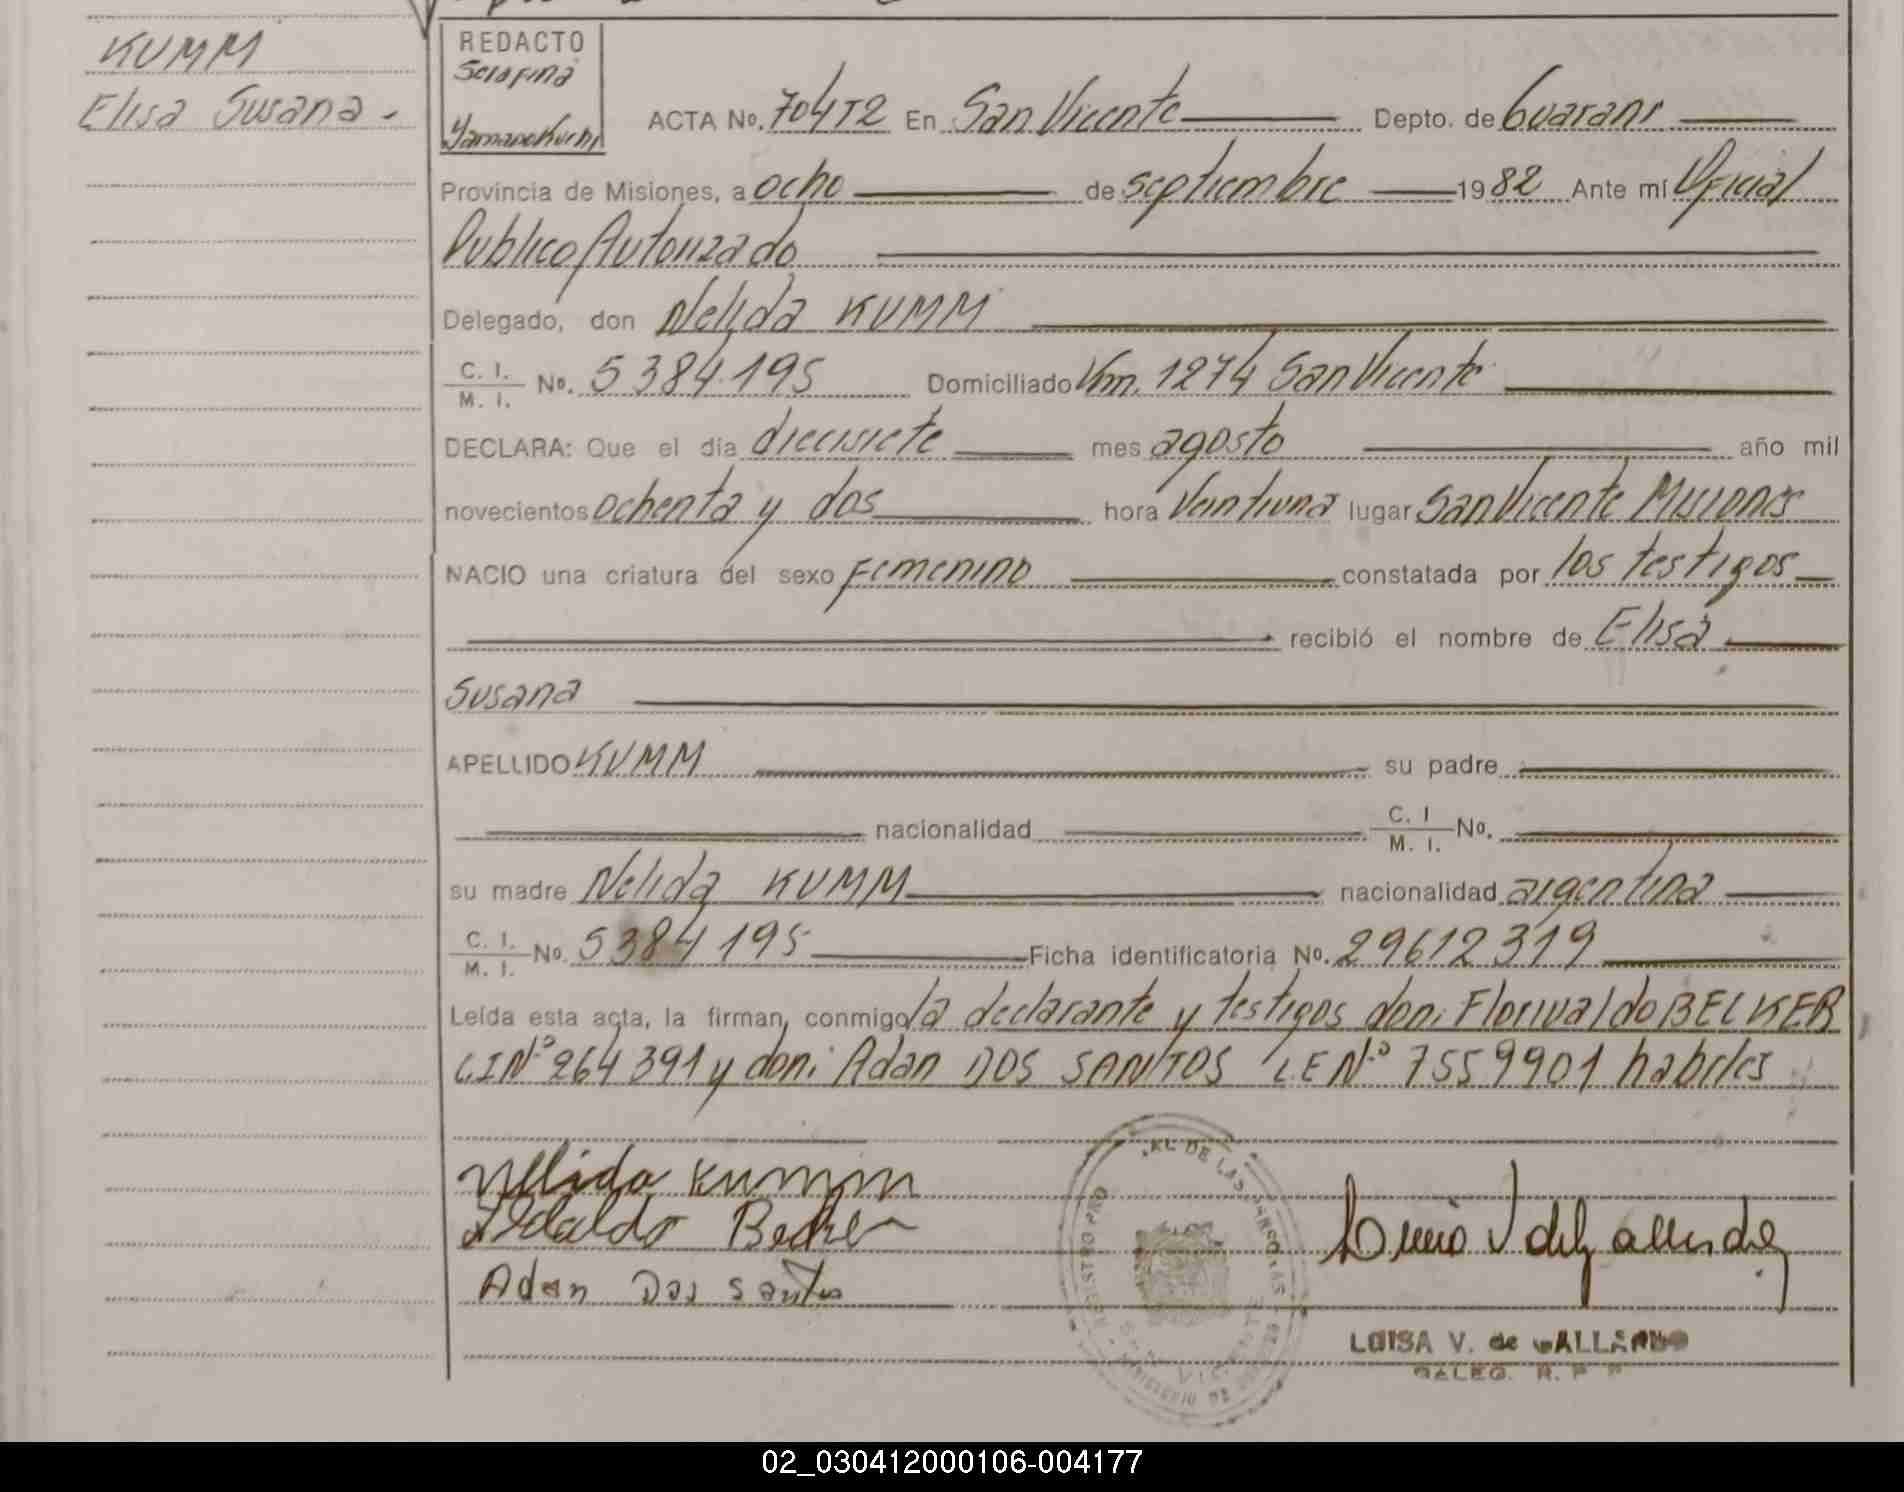 KUMM
Elisa Susana.
REDACTO
Serafina
Yamanokuchi
ACTA No. 704T2 En San Vicente Depto. de Guarani
Provincia de Misiones, a ocho de septiembre 1982 Ante mí Oficial
Publico Autorizado
Delegado, don Nelida KUMM
C. I. / M. I. No. 5384.195 Domiciliado Km. 1274 San Vicente
DECLARA: Que el día diecisiete mes agosto año mil
novecientos ochenta y dos hora Veintiuna lugar San Vicente Misiones
NACIO una criatura del sexo Femenino constatada por los testigos
recibió el nombre de Elisa
Susana
APELLIDO KUMM su padre
nacionalidad C. I / M. I. No.
su madre Nelida KUMM nacionalidad argentina
C. I. / M. I. No. 5384195 Ficha identificatoria No. 29612319
Leída esta acta, la firman, conmigo la declarante y testigos don: Florivaldo BELKER
C.I Nº 264391 y don: Adan DOS SANTOS LE Nº 7559901 habiles
Nelida Kumm
Becker
Adan Dos Santos
LUISA V. de
DELEG. R. P. P
SAN VICENTE
02_030412000106-004177